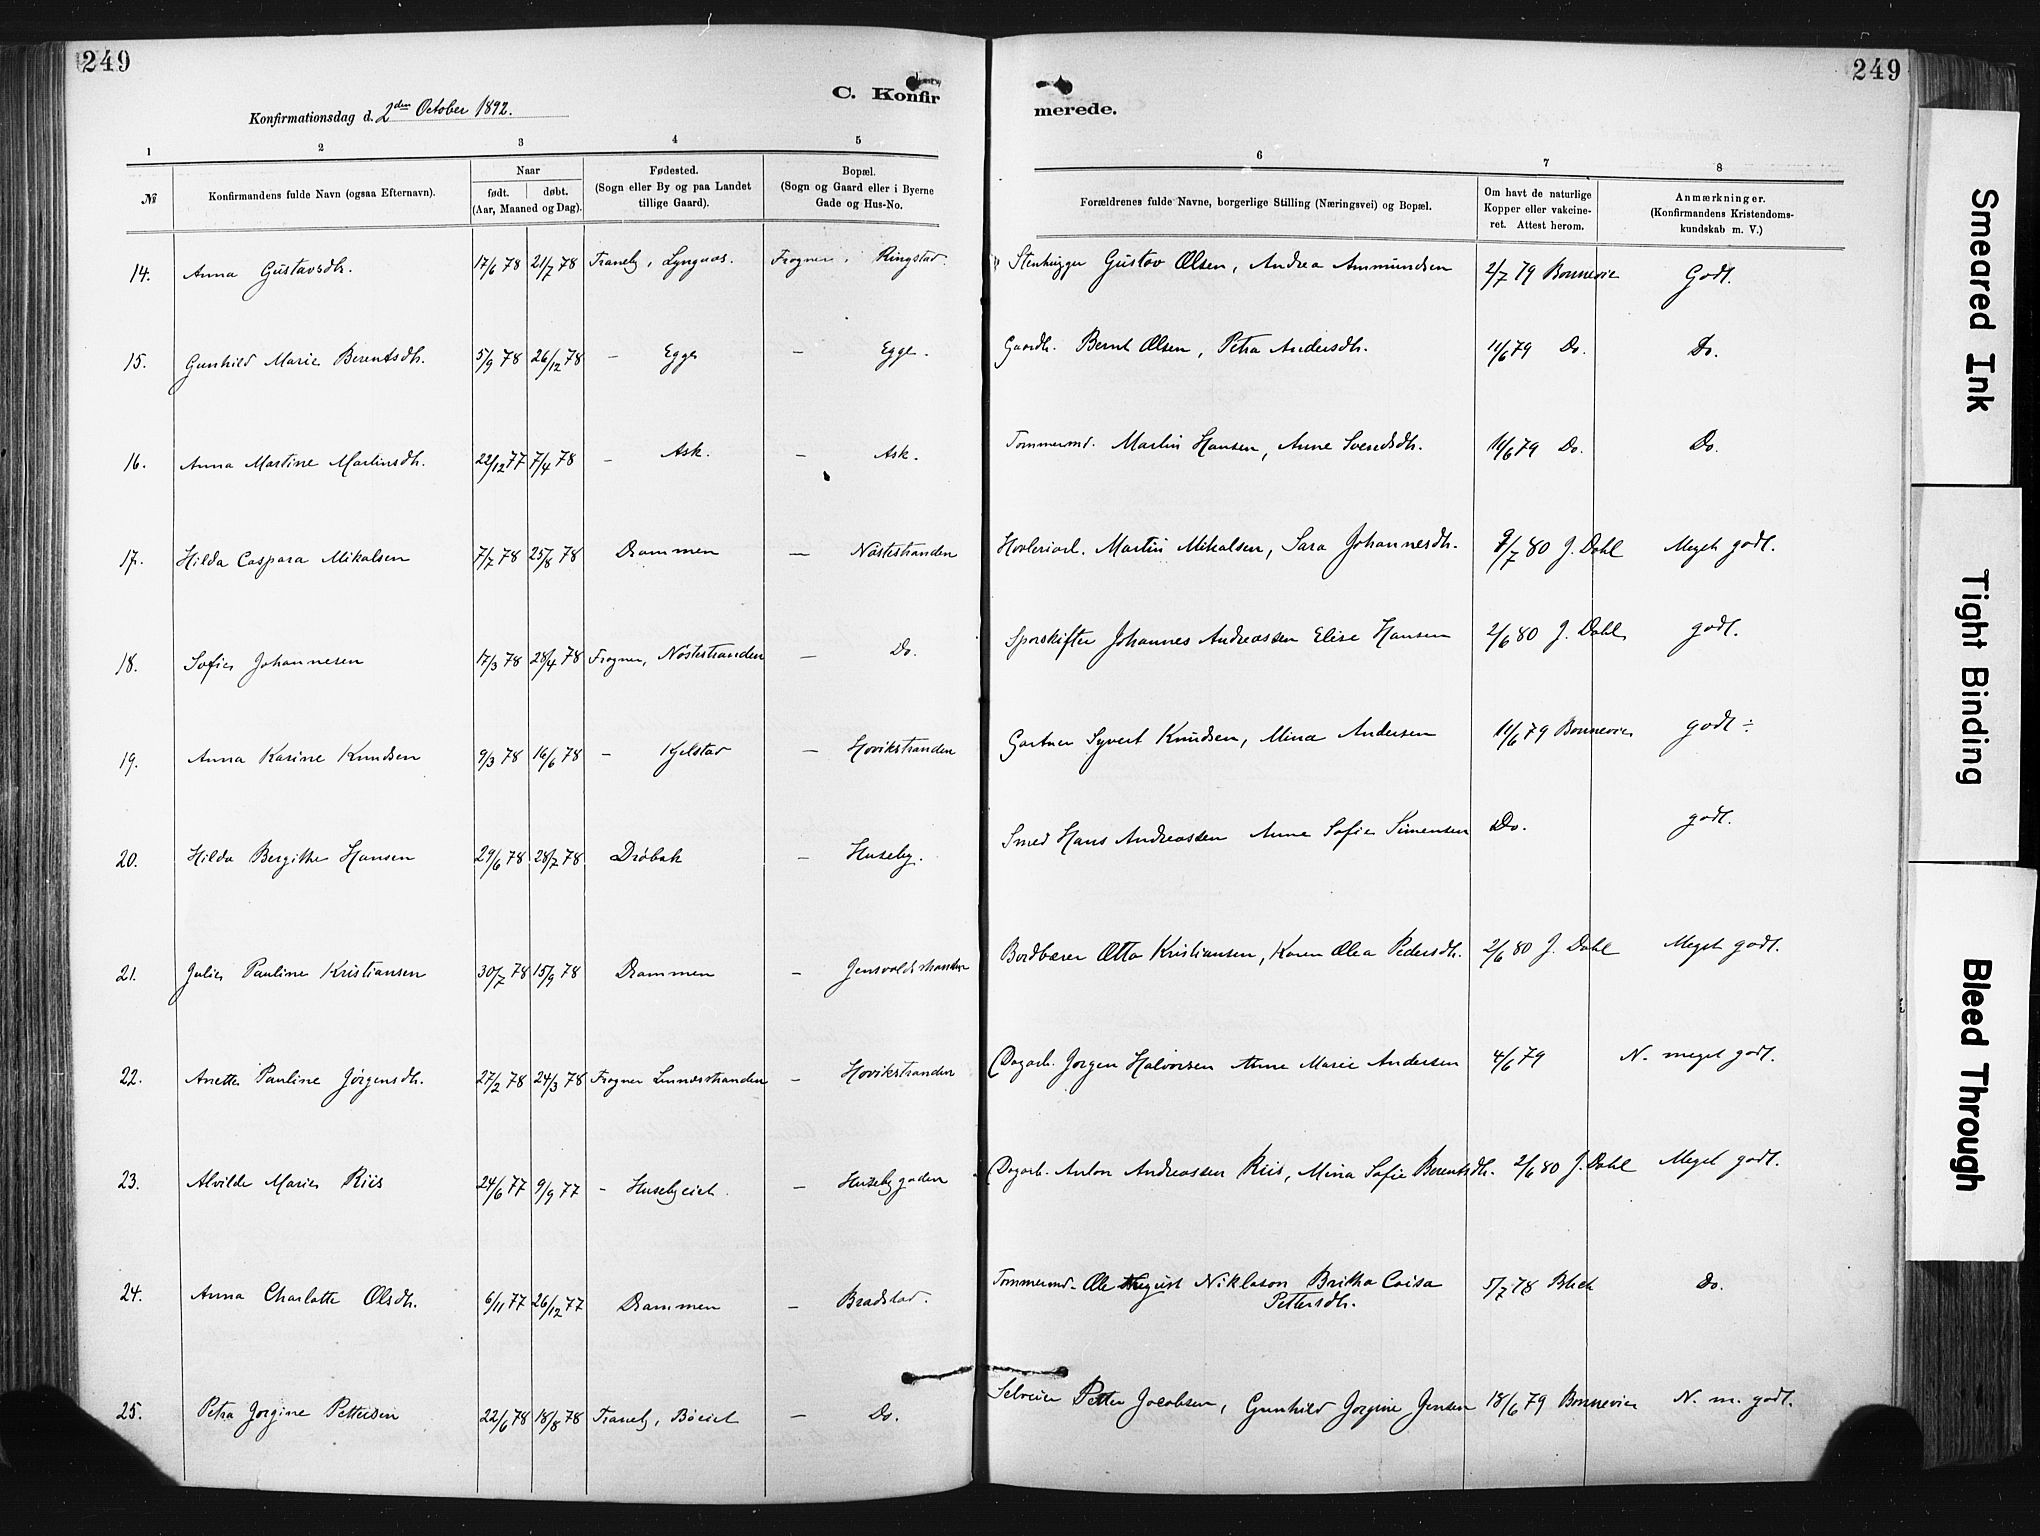 249
249
C. Konfir
merede.
Konfirmationsdag d. 2den October 1892.
1 2 3 4 5
6 7 8
№ Konfirmandens fulde Navn (ogsaa Efternavn). Naar født. døbt. (Aar, Maaned og Dag). Fødested. (Sogn eller By og paa Landet tillige Gaard). Bopæl. (Sogn og Gaard eller i Byerne Gade og Hus-No.
Forældrenes fulde Navne, borgerlige Stilling (Næringsvei) og Bopæl. Om havt de naturlige Kopper eller vakcineret. Attest herom. Anmærkninger. (Konfirmandens Kristendomskundskab m. V.)
14. Anna Gustavsdtr. 17/6 78 21/7 78 Tranby, Lyngaas. Frogner, Ringstad. Stenhugger Gustav Olsen, Andrea Ammundsen 2/7 79 Bonnevie Godt.
15. Gunhild Marie Berentsdtr. 5/9 78 26/12 78 — Egge — Egge. Gaardb. Bernt Olsen, Petra Andersdtr. 11/6 79 Do. Do.
16. Anna Martine Martinsdtr. 22/12 77 7/4 78 — Ask. — Ask. Tømmermd. Martin Hansen, Anne Svendsdtr. 11/6 79 Do. Do.
17. Hilda Caspara Mikalsen 7/7 78 25/8 78 Drammen — Nøstestranden Høvleriarb. Martin Mikalsen, Sara Johannesdtr. 9/7 80 J. Dahl Meget godt.
18. Sofie Johannesen 17/3 78 28/4 78 Frogner, Nøstestranden — Do. Sporskifter Johannes Andreassen Elise Hansen 2/6 80 J. Dahl godt.
19. Anna Karine Knudsen 9/3 78 16/6 78 — Kjelstad — Hovikstranden Gartner Syvert Knudsen, Mina Andersen 11/6 79 Bonnevie godt ÷
20. Hilda Bergitte Hansen 29/6 78 28/7 78 Drøbak — Huseby. Smed Hans Andreassen Anne Sofie Simensen Do. godt.
21. Julie Pauline Kristiansen 30/7 78 15/9 78 Drammen — Jensvoldstranden Bordbærer Otto Kristiansen, Karen Olea Pedersdtr. 2/6 80 J. Dahl Meget godt.
22. Anette Pauline Jørgensdtr. 27/2 78 24/3 78 Frogner Linnesstranden — Hovikstranden Dagarb. Jørgen Halvorsen Anne Marie Andersen 4/6 79 N. meget godt.
23. Alvilde Marie Riis 24/6 77 9/9 77 — Husebyeiet. — Husebygaden Dagarb. Anton Andreassen Riis, Mina Sofie Berentsdtr. 2/6 80 J. Dahl Meget godt.
24. Anna Charlotte Olsdtr. 6/11 77 26/12 77 Drammen — Bradstad. Tømmermd. Ole August Niklason Britha Caisa Pettersdtr. 5/7 78 Do.
25. Petra Jørgine Pettersen 22/6 78 18/8 78 Tranby, Bøeiet — Do. Selveier Petter Jacobsen, Gunhild Jørgine Jensen 18/6 79 Bonnevie N. m. godt.
Smeared Ink
Tight Binding
Bleed Through